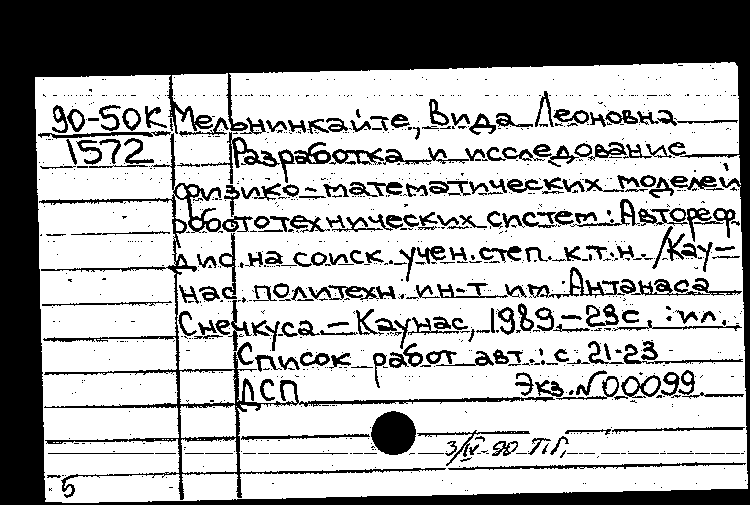 90-50К Мельнинкайте, Вида Леоновна
1572 Разработка и исследование
физико-математических моделей
робототехнических систем: Автореф.
дис. на соиск. учен. степ. к.т.н. /Кау-
нас. политехн. ин-т им. Антанаса
Снечкуса. - Каунас, 1989. - 23с. : ил.
Список работ авт.: с. 21-23
ДСП Экз. №00099
3/IV-90 ТГ,
5